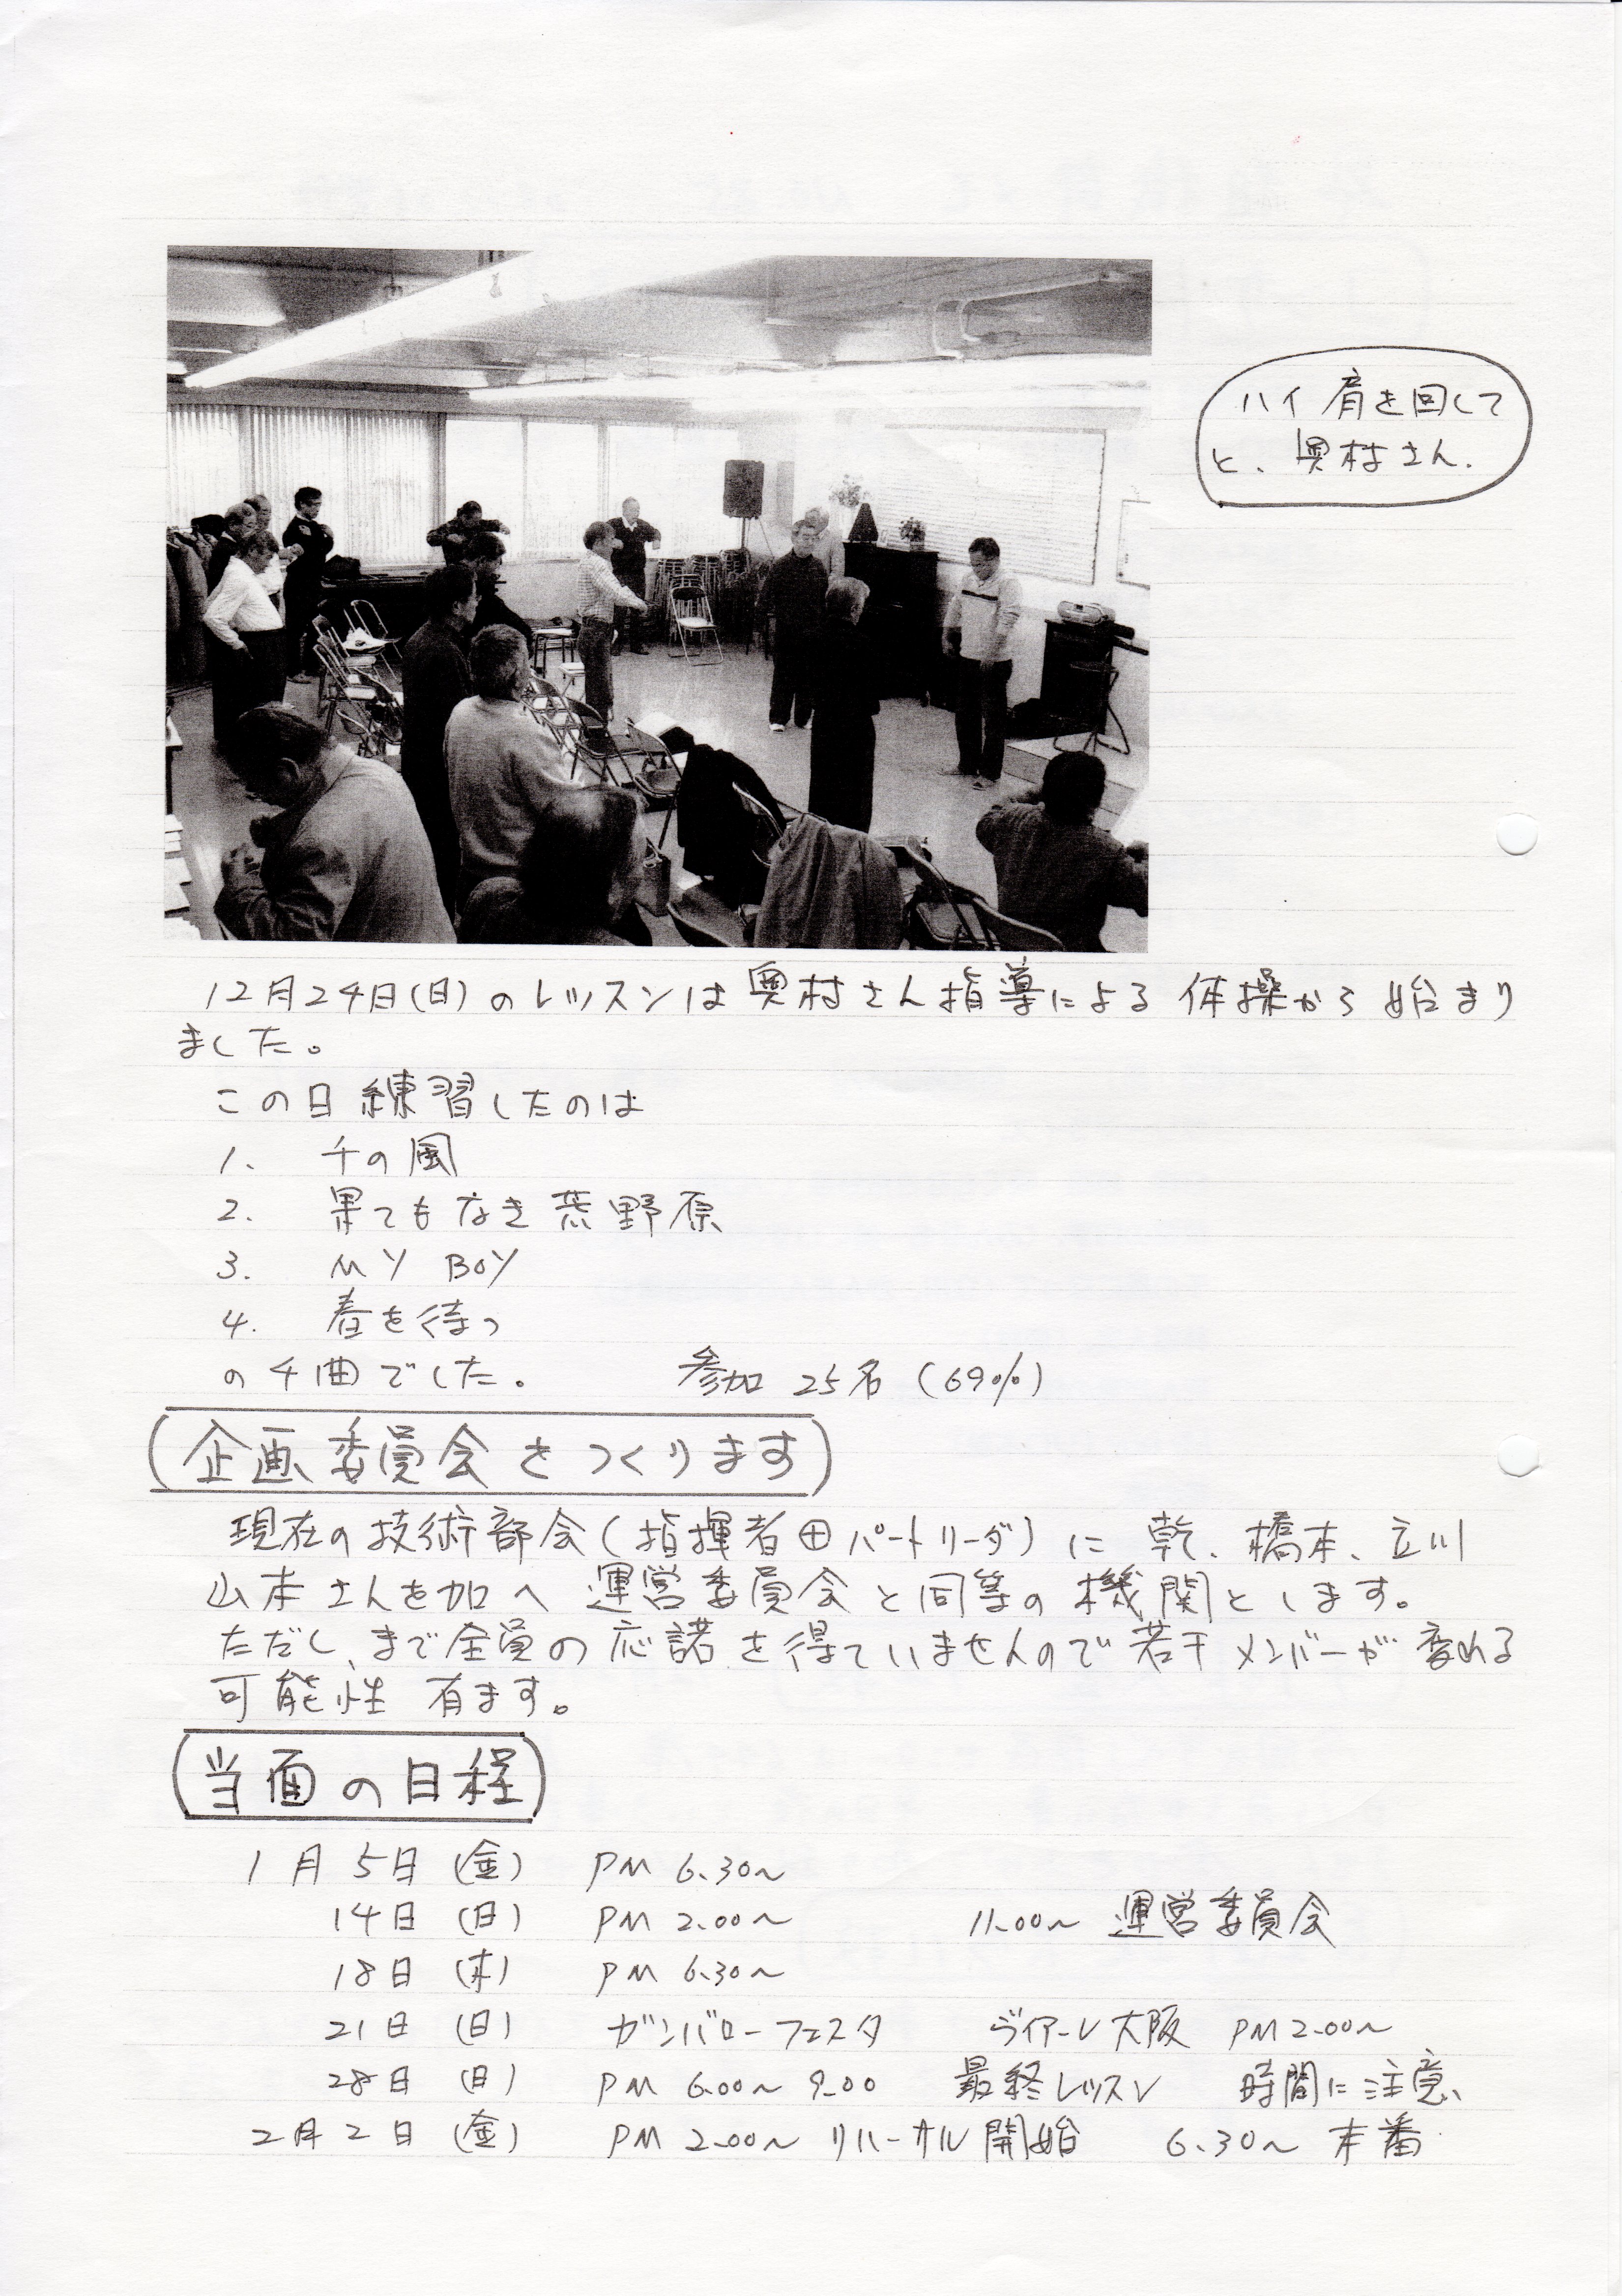 ハイ 肩を回して
と、奥村さん.
12月24日(日)のレッスンは奥村さん指導による 体操から始まり
ました。
この日練習したのは
1. 千の風
2. 果てもなき荒野原
3. MY BOY
4. 春を待つ
の4曲でした。 参加 25名 (69%)
(企画委員会をつくります)
現在の技術部会(指揮者⊕パートリーダ)に 乾、橋本、立川
山本さんを加へ 運営委員会と同等の機関とします。
ただし、まで全員の応諾を得ていませんので若干メンバーが変れる
可能性 有ます。
(当面の日程)
1月5日 (金) PM 6.30〜
14日 (日) PM 2.00〜 11.00〜 運営委員会
18日 (木) PM 6.30〜
21日 (日) ガンバローフェスタ ヴィアーレ大阪 PM2.00〜
28日 (日) PM 6.00〜9.00 最終レッスン 時間に注意、
2月2日 (金) PM 2.00〜 リハーサル開始 6.30〜 本番